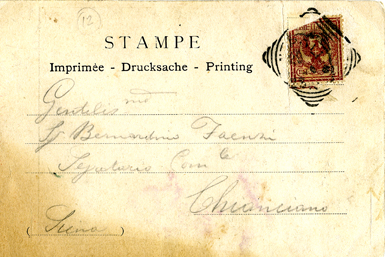 12
STAMPE
Imprimée - Drucksache - Printing
Gentilis mo
Sr Bernardino Faenzi
Segretario Com.le
Chianciano
( Siena )